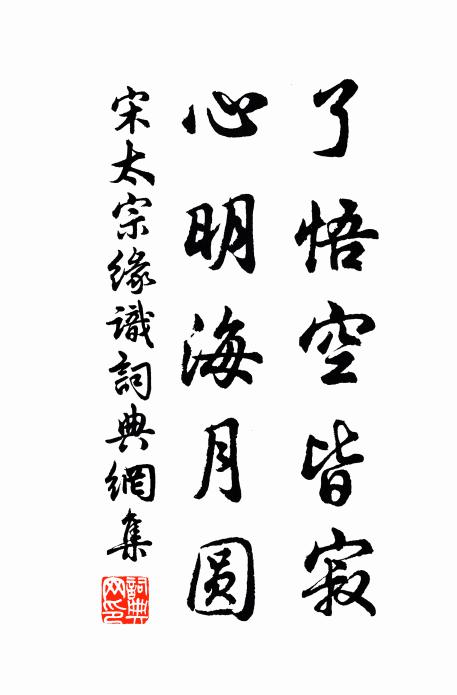 了悟空皆寂
心明海月圆
宋太宗緣識詞典網集
詞典网印